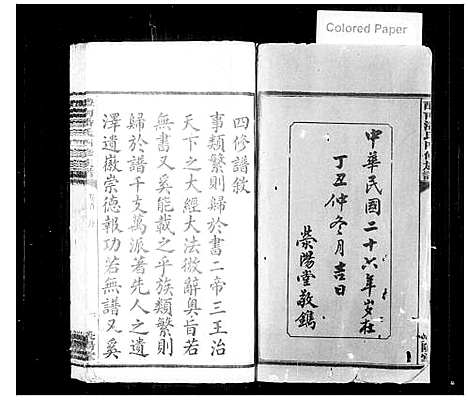 Colored Paper
中華民國二十六年岁在
丁丑仲冬月吉日
荥陽堂敬鐫
四修譜敘
事類繁則歸於書二帝三王治
天下之大經大法微辭奥旨若
無書又奚能載之乎族類繁則
歸於譜千支萬派著先人之遺
澤遺徽崇德報功若無譜又奚